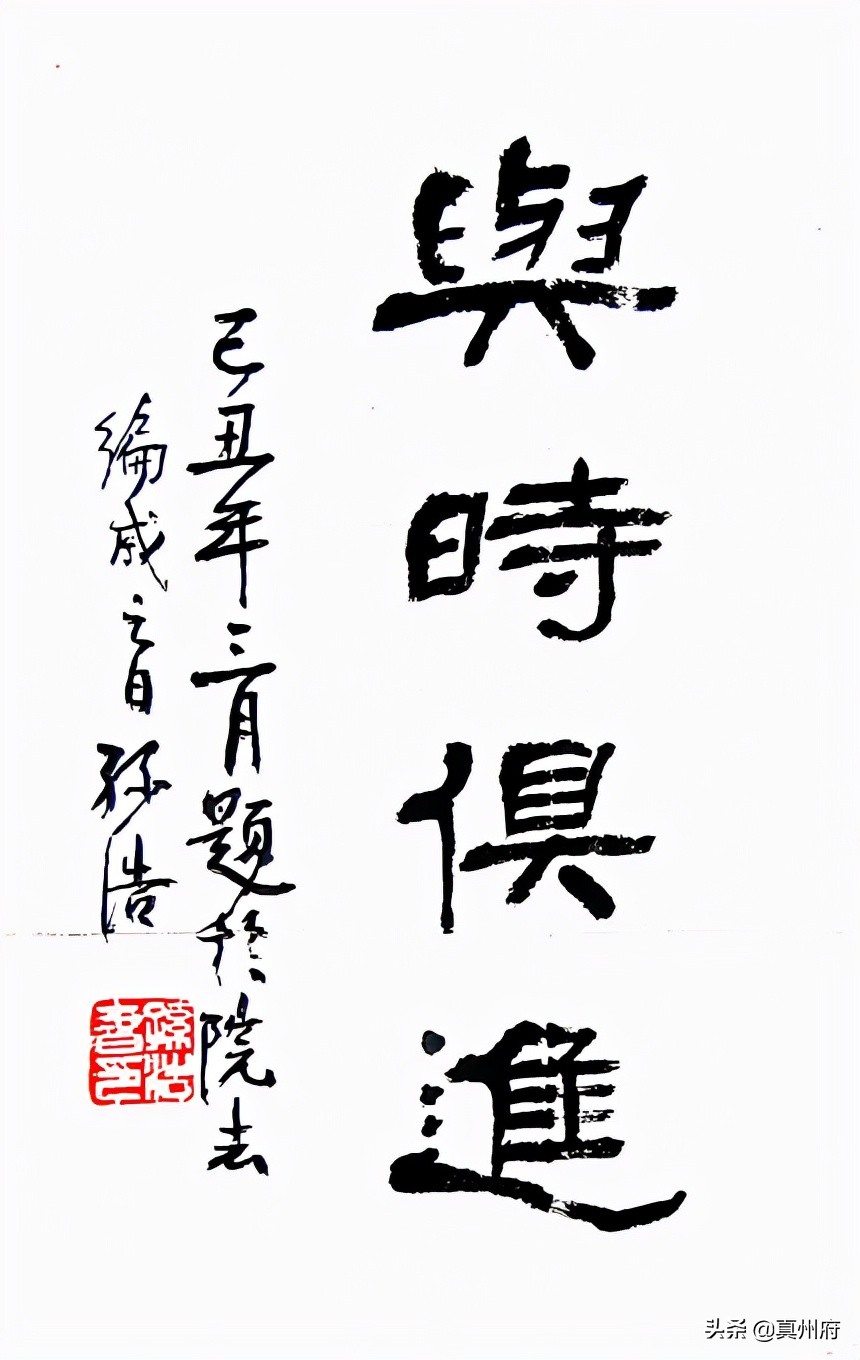 與時俱進
己丑年三月題於院志
編成之日孫浩
孫浩書印
头条 @真州府